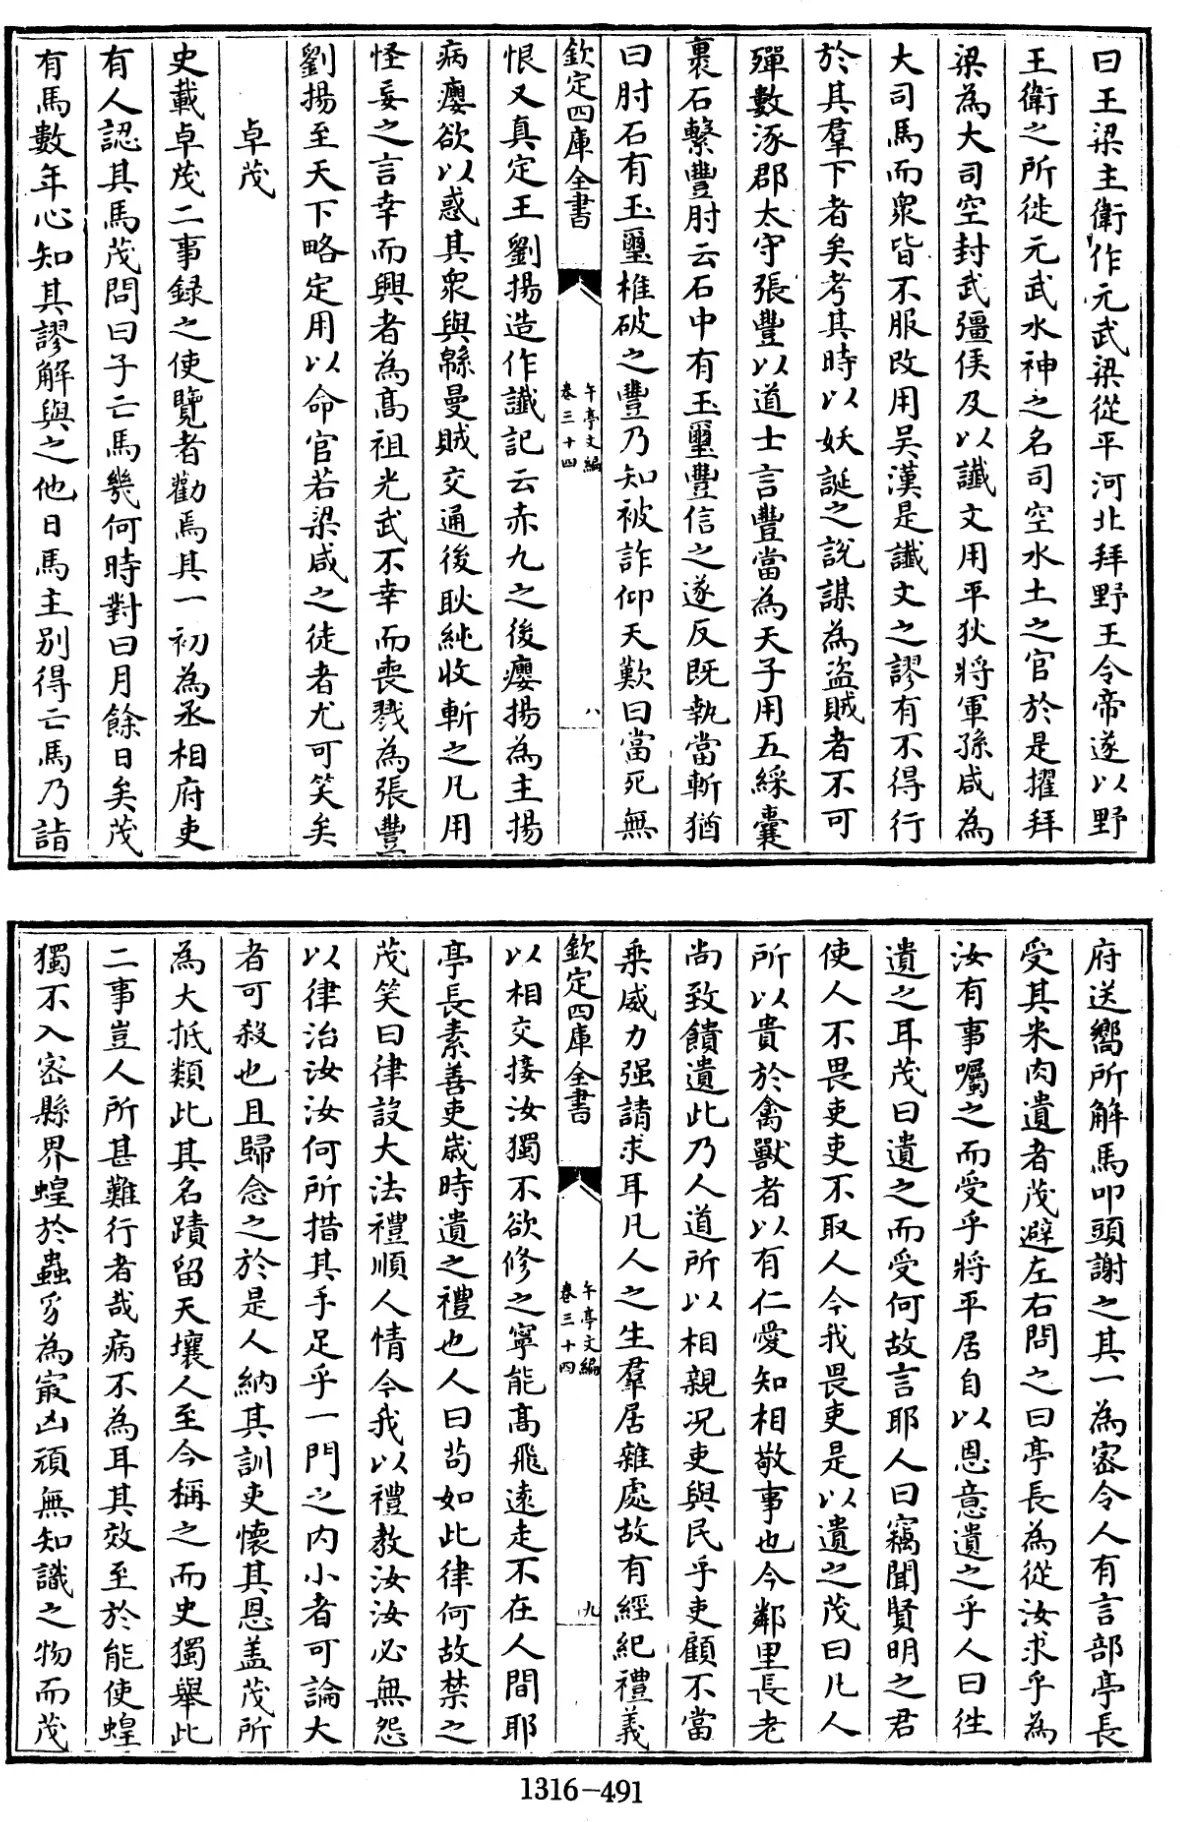 曰王梁主衛作元武梁從平河北拜野王令帝遂以野
王衛之所徙元武水神之名司空水土之官於是擢拜
梁為大司空封武彊侯及以讖文用平狄將軍孫咸為
大司馬而衆皆不服改用吳漢是讖文之謬有不得行
於其羣下者矣考其時以妖誕之說謀為盜賊者不可
殫數涿郡太守張豐以道士言豐當為天子用五綵囊
裹石繫豐肘云石中有玉璽豐信之遂反既執當斬猶
曰肘石有玉璽椎破之豐乃知被詐仰天歎曰當死無
欽定四庫全書
午亭文編
卷三十四
八
恨又真定王劉揚造作讖記云赤九之後癭揚為主揚
病癭欲以惑其衆與緜曼賊交通後耿純收斬之凡用
怪妄之言幸而興者為髙祖光武不幸而喪戮為張豐
劉揚至天下略定用以命官若梁咸之徒者尤可笑矣
卓茂
史載卓茂二事録之使覽者勸焉其一初為丞相府吏
有人認其馬茂問曰子亡馬幾何時對曰月餘日矣茂
有馬數年心知其謬解與之他日馬主别得亡馬乃詣
府送嚮所解馬叩頭謝之其一為密令人有言部亭長
受其米肉遺者茂避左右問之曰亭長為從汝求乎為
汝有事囑之而受乎將平居自以恩意遺之乎人曰往
遺之耳茂曰遺之而受何故言耶人曰竊聞賢明之君
使人不畏吏吏不取人今我畏吏是以遺之茂曰凡人
所以貴於禽獸者以有仁愛知相敬事也今鄰里長老
尚致饋遺此乃人道所以相親况吏與民乎吏顧不當
乗威力强請求耳凡人之生羣居雜處故有經紀禮義
欽定四庫全書
午亭文編
卷三十四
九
以相交接汝獨不欲修之寧能髙飛遠走不在人間耶
亭長素善吏嵗時遺之禮也人曰茍如此律何故禁之
茂笑曰律設大法禮順人情今我以禮教汝汝必無怨
以律治汝汝何所措其手足乎一門之内小者可論大
者可殺也且歸念之於是人納其訓吏懷其恩盖茂所
為大抵類此其名蹟留天壤人至今稱之而史獨舉此
二事豈人所甚難行者哉病不為耳其效至於能使蝗
獨不入密縣界蝗於蟲豸為最凶頑無知識之物而茂
1316-491